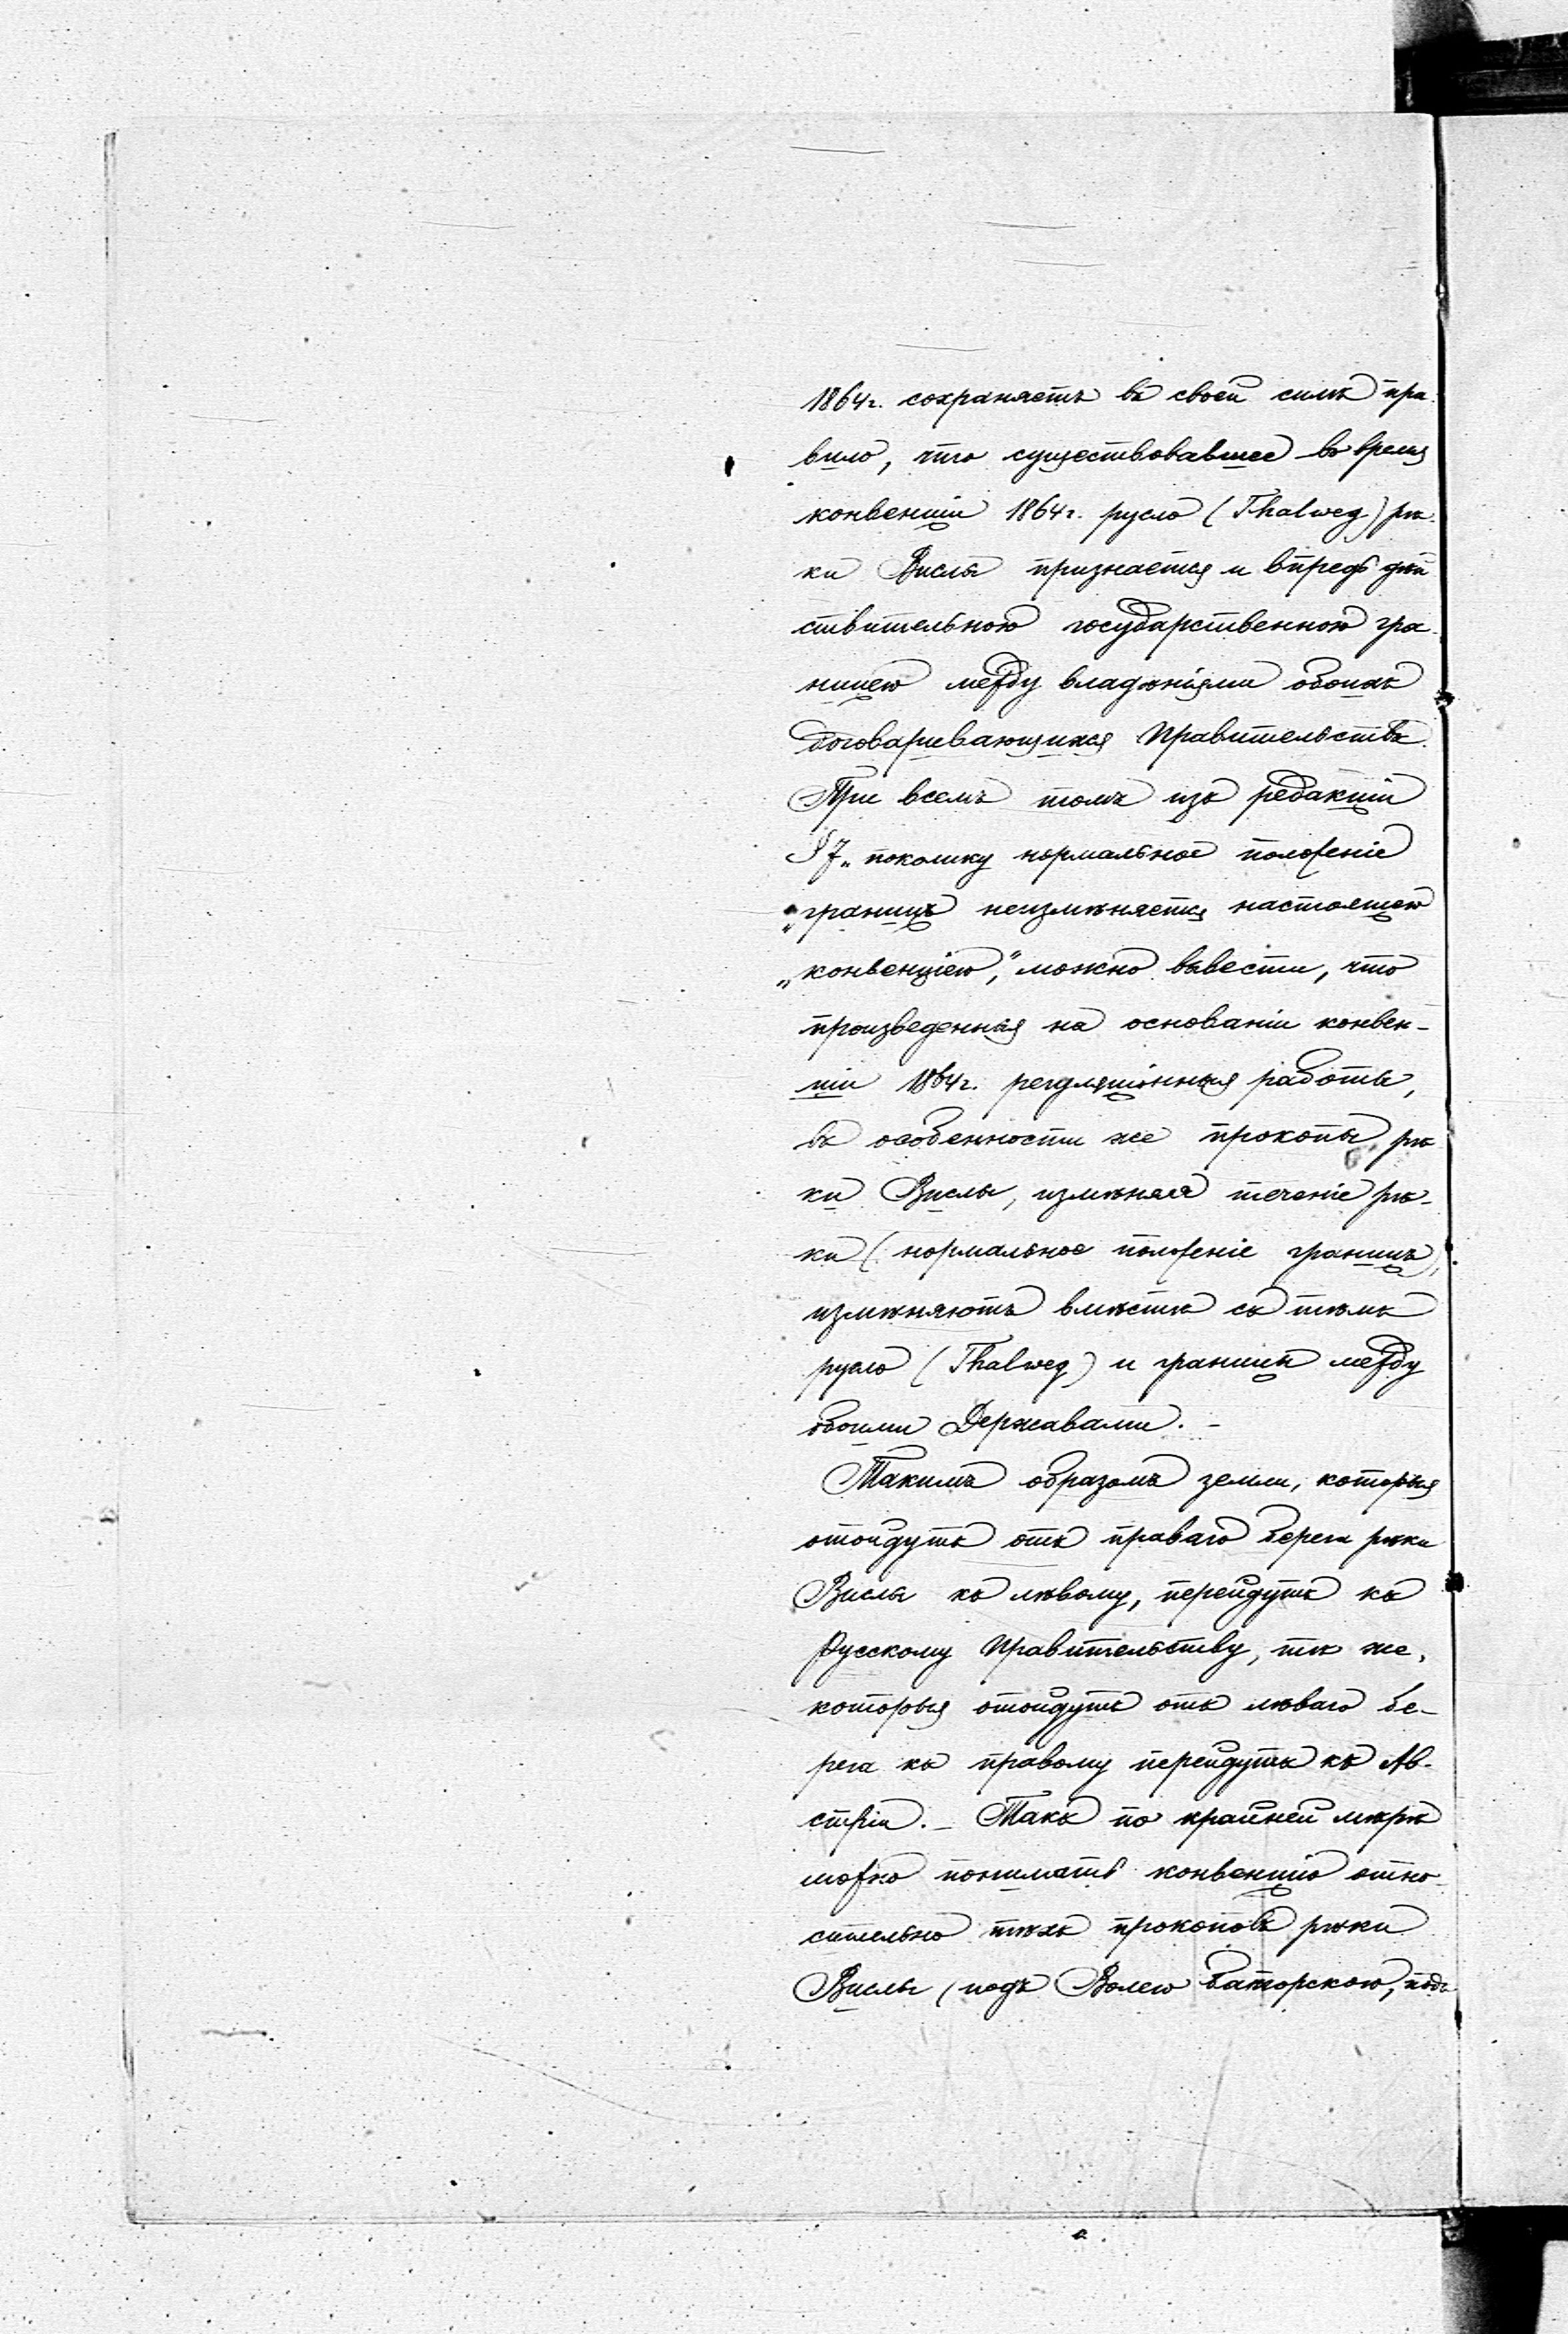 1864г. сохраняетъ въ своей силѣ пра-
вило, что существовавшее во время
конвенціи 1864г. русло (Thalweg) рѣ-
ки Вислы признается и впредь дѣй
ствительною государственною гра-
ницею между владѣніями обоихъ
договаривающихся Правительствъ.
При всемъ томъ изъ редакціи
§ 7 „поколику нормальное положеніе
„границъ неизмѣняется настоящею
„конвенціею," можно вывести, что
произведенныя на основаніи конвен-
ціи 1864г. регуляціонныя работы,
въ особенности же прокопы рѣ
ки Вислы, измѣняя теченіе рѣ-
ки (нормальное положеніе границъ),
измѣняютъ вмѣстѣ съ тѣмъ
русло (Thalweg) и границы между
обоими Державами. -
Такимъ образомъ земли, которыя
отойдутъ отъ праваго берега рѣки
Вислы къ лѣвому, перейдутъ къ
Русскому Правительству, тѣ же,
которыя отойдутъ отъ лѣваго бе-
рега къ правому перейдутъ къ Ав-
стріи. - Такъ по крайней мѣрѣ
можно понимать конвенцію отно-
сительно тѣхъ прокоповъ рѣки
Вислы (подъ Волею Баторскою, подъ